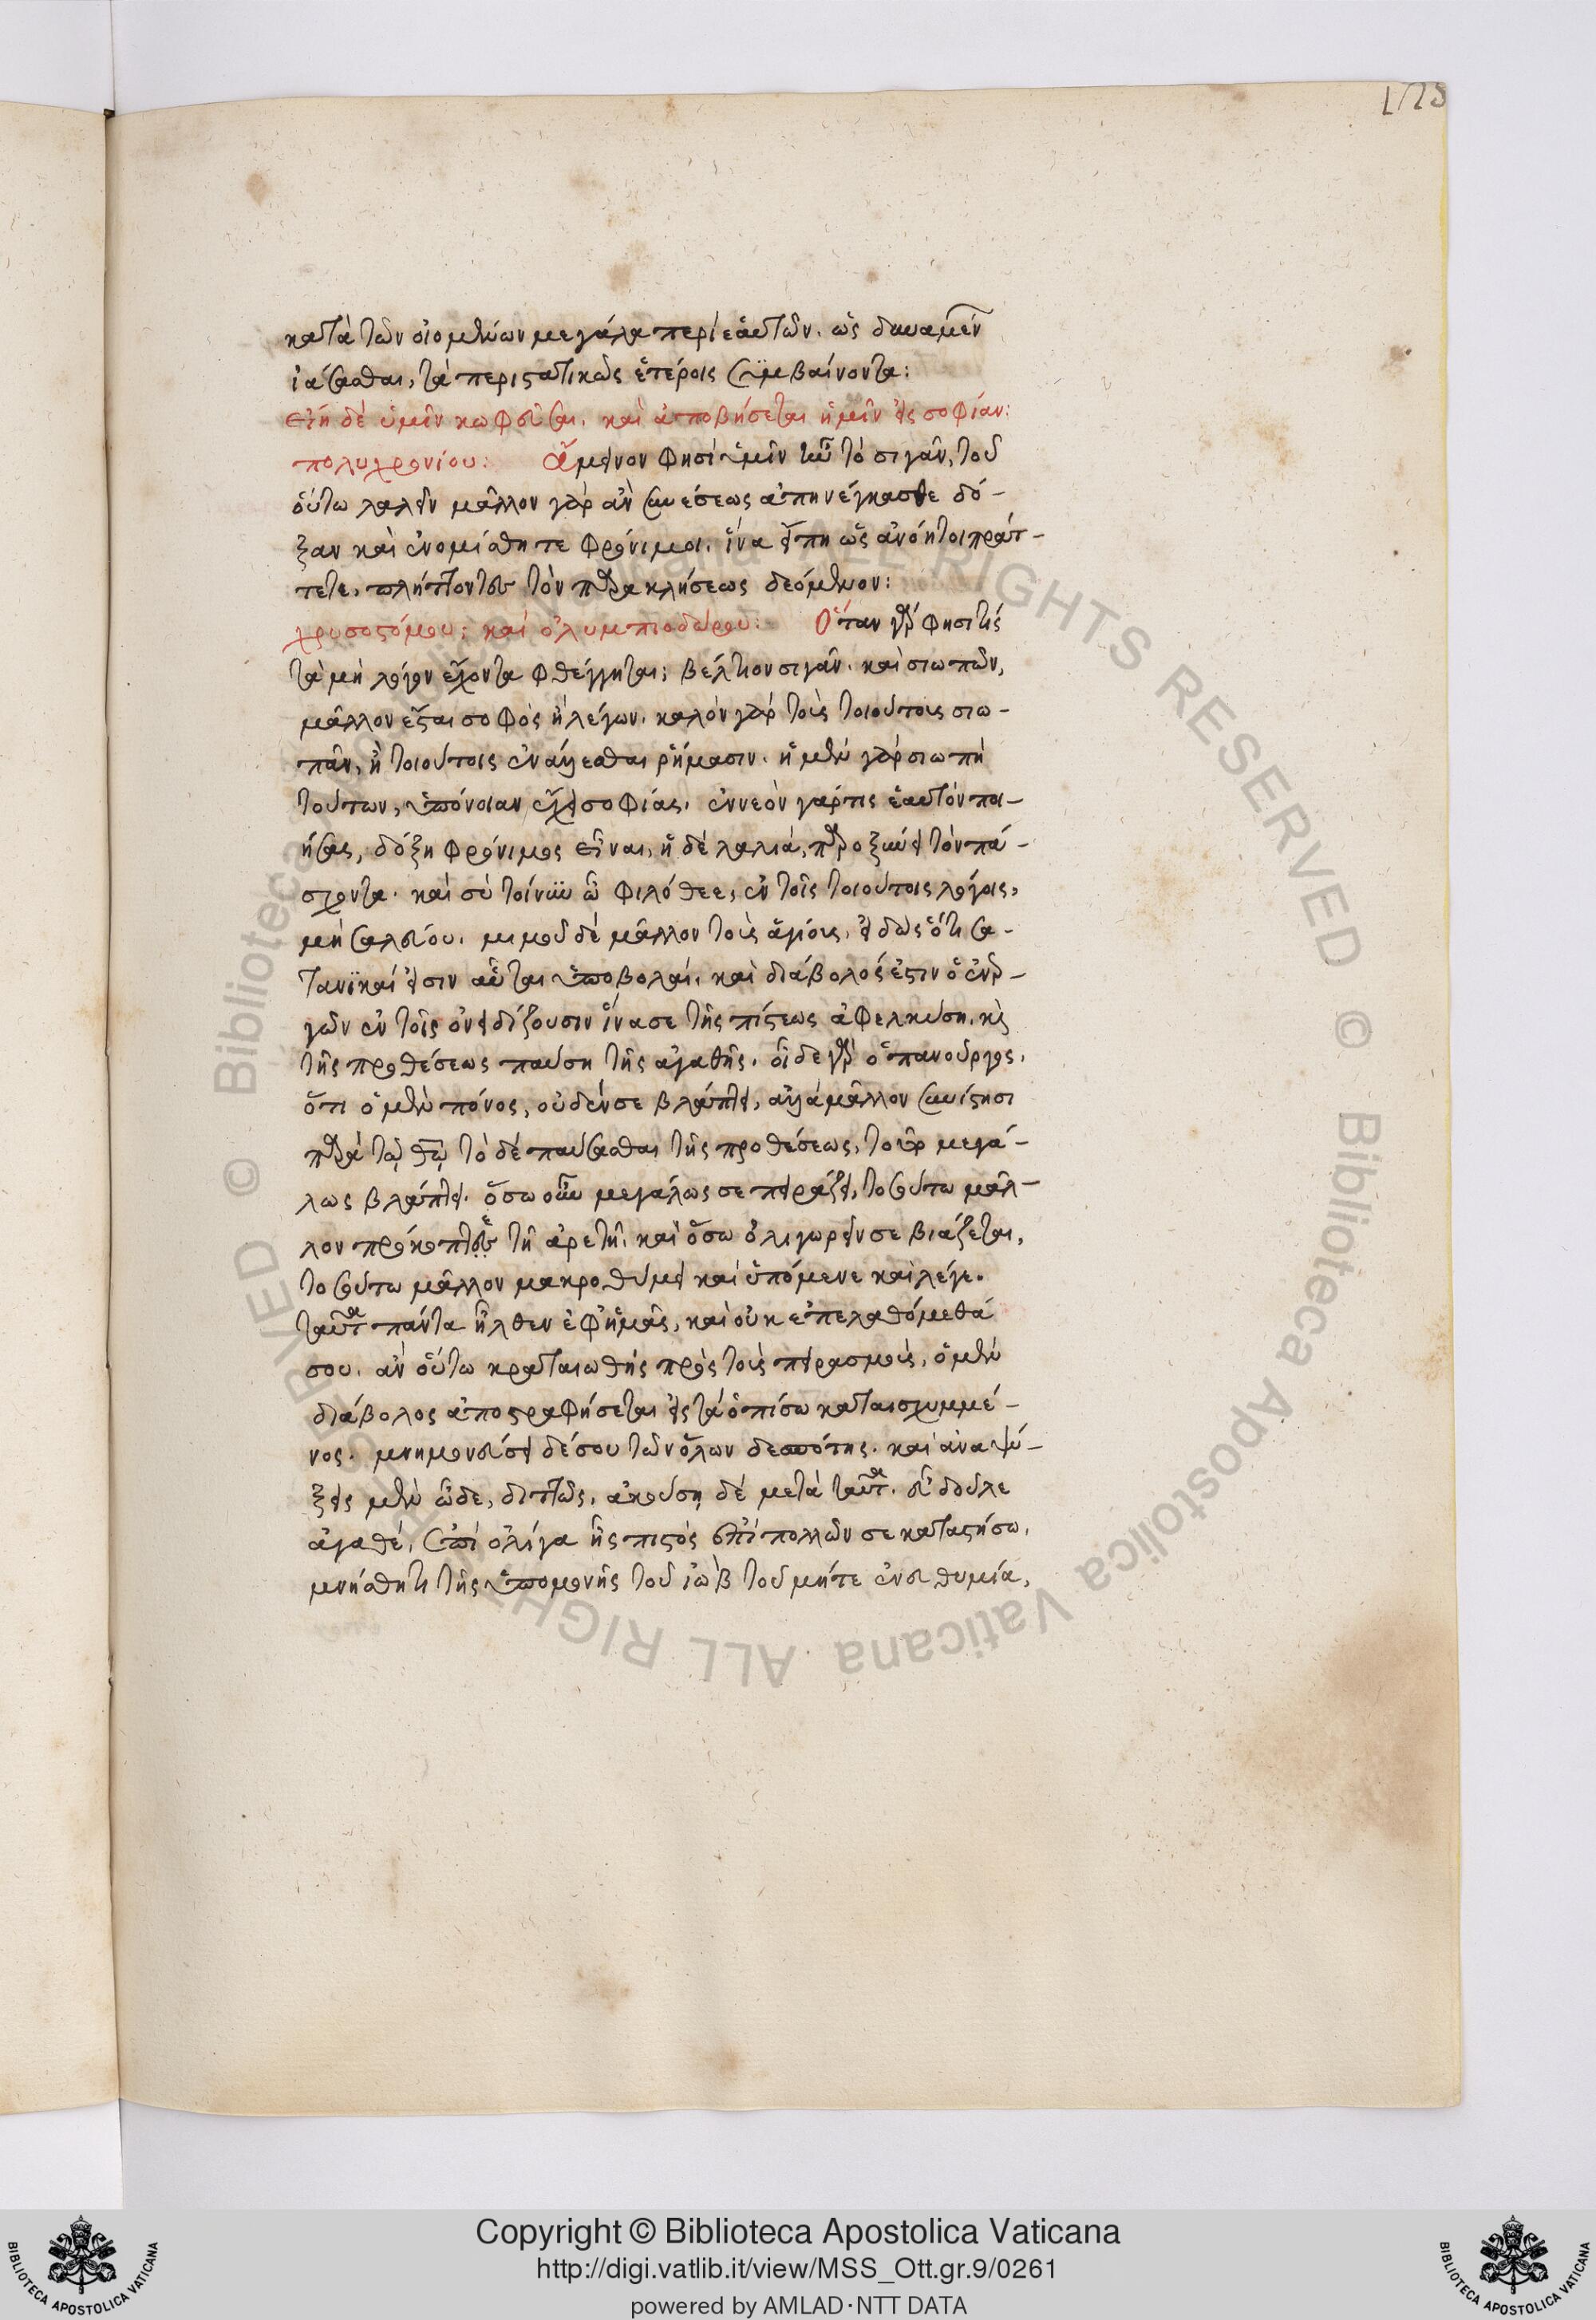 125
κατὰ τῶν οἰομένων μεγάλα περὶ ἑαυτῶν. ὡς δυναμέν
ἰάσασθαι, τὰ περιστατικῶς ἑτέροις συμβαίνοντα:
εἴη δὲ ὑμῖν κωφεῦσαι. καὶ ἀποβήσεται ἡμῖν εἰς σοφίαν:
πολυχρονίου: ἄμεινον φησὶ ὑμῖν ἦν τὸ σιγᾶν, τοῦ
οὕτω λαλεῖν μᾶλλον γὰρ ἂν συνέσεως ἀπηνέγκασθε δό-
ξαν καὶ ἐνομίσθητε φρόνιμοι. ἵνα εἴπη ὡς ἀνόητοι πράτ-
τετε, πλήττοντες τὸν παρακλήσεως δεόμενον:
χρυσοστόμου: καὶ ὀλυμπιοδώρου: Ὅταν γάρ φησι τίς
τὰ μὴ λόγον ἔχοντα φθέγγηται; βέλτιον σιγᾶν. καὶ σιωπῶν,
μᾶλλον ἔσται σοφὸς ἢ λέγων. καλὸν γὰρ τοὺς τοιούτους σιω-
πᾶν, ἢ τοιούτοις ἐνάγεσθαι ῥήμασιν. ἡ μὲν γὰρ σιωπὴ
τούτων, ὑπόνοιαν ἔχει σοφίας. ἐννεὸν γάρ τις ἑαυτὸν ποι-
ήσας, δόξη φρόνιμος εἶναι, ἡ δὲ λαλιά, παροξύνει τὸν πά-
σχοντα. καὶ σὺ τοίνυν ὦ φιλόθεε, ἐν τοῖς τοιούτοις λόγοις,
μὴ σαλεύου. μιμοῦ δὲ μᾶλλον τοὺς ἁγίους. εἰδὼς ὅτι σα-
τανϊκαί εἰσιν αὗται ὑποβολαί. καὶ διάβολός ἐστιν ὁ ἐνερ-
γῶν ἐν τοῖς ὀνειδίζουσιν ἵνα σε τῆς πίστεως ἀφελκύση. κὶ
τῆς προθέσεως παύση τῆς ἀγαθῆς. οἶδε γὰρ ὁ πανοῦργος,
ὅτι ὁ μὲν πόνος, οὐδέν σε βλάπτει, ἀλλὰ μᾶλλον συνίστησι
παρὰ τῷ θῷ τὸ δὲ παύσασθαι τῆς προθέσεως, τοῦτο μεγά-
λως βλάπτει. ὅσω οὖν μεγάλως σε πειράζει, τοσούτω μᾶλ-
λον πρόκοπτε ἐν τῆ ἀρετῆ. καὶ ὅσω ὀλιγωρεῖν σε βιάζεται,
τοσούτω μᾶλλον μακροθύμει καὶ ὑπόμενε καὶ λέγε.
ταῦτα πάντα ἦλθεν ἐφ' ἡμᾶς, καὶ οὐκ ἐπελαθόμεθά
σου. ἂν οὕτω κραταιωθῆς πρὸς τοὺς πειρασμούς, ὁ μὲν
διάβολος ἀποστραφήσεται εἰς τὰ ὀπίσω καταισχυμμέ-
νος. μνημονεύσει δέ σου τῶν ὅλων δεσπότης. καὶ ἀναψύ-
ξεις μὲν ὧδε, διττῶς. ἀκούση δὲ μετὰ ταῦτα. εὖ δοῦλε
ἀγαθέ, ἐπὶ ὀλίγα ἦς πιστὸς ἐπὶ πολλῶν σε καταστήσω.
μνήσθητι τῆς ὑπομονῆς τοῦ ἰὼβ τοῦ μήτε ἐν εὐθυμία,
© Biblioteca Apostolica Vaticana ALL RIGHTS RESERVED
Copyright © Biblioteca Apostolica Vaticana
http://digi.vatlib.it/view/MSS_Ott.gr.9/0261
powered by AMLAD·NTT DATA
BIBLIOTECA APOSTOLICA VATICANA
BIBLIOTECA APOSTOLICA VATICANA